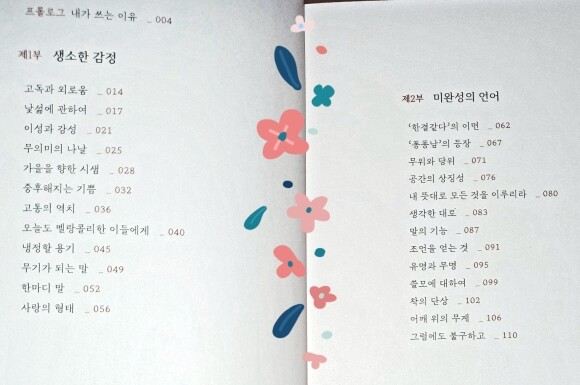 프롤로그 내가 쓰는 이유 _ 004
제1부 생소한 감정
고독과 외로움 _ 014
낯섦에 관하여 _ 017
이성과 감성 _ 021
무의미의 나날 _ 025
가을을 향한 시샘 _ 028
중후해지는 기쁨 _ 032
고통의 역치 _ 036
오늘도 멜랑콜리한 이들에게 _ 040
냉정할 용기 _ 045
무기가 되는 말 _ 049
한마디 말 _ 052
사랑의 형태 _ 056
제2부 미완성의 언어
'한결같다'의 이면 _ 062
'퐁퐁남'의 등장 _ 067
무위와 당위 _ 071
공간의 상징성 _ 076
내 뜻대로 모든 것을 이루리라 _ 080
생각한 대로 _ 083
말의 기능 _ 087
조언을 얻는 것 _ 091
유명과 무명 _ 095
쓸모에 대하여 _ 099
착의 단상 _ 102
어깨 위의 무게 _ 106
그럼에도 불구하고 _ 110